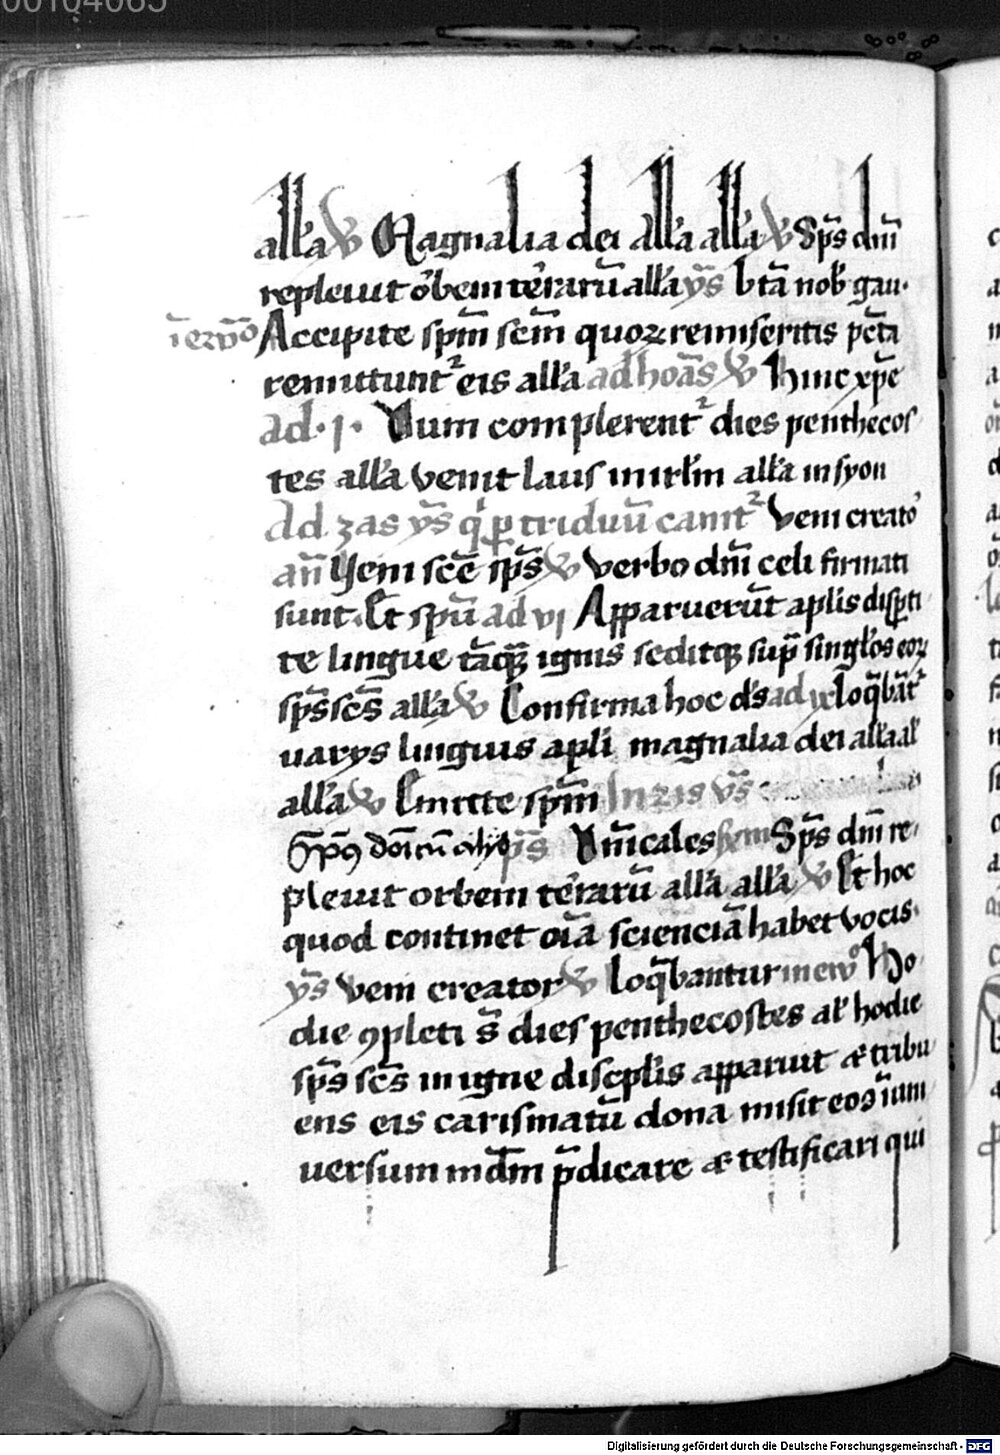 00104065
all'a W Magnalia dei all'a all'a W Sp̄s dn̄i
repleuit orbem terrarū all'a ȳs btā nob' gau-
Accipite spm̄ scm̄ quoꝝ remiseritis pctā
remittunt² eis all'a ad hoās W Hinc xp̄e
ad · j · Dum complerent² dies penthecos
tes all'a venit laus in irl'm all'a in syon
Ad zas ȳs q' ꝑ triduū canit² Veni creato'
an̄ Veni scē sp̄s W verbo dn̄i celi firmati
sunt. Et spū ad vj Apparuerūt aplis disꝑti
te lingue tāqꝫ ignis seditqꝫ sup̄ singl'os eoꝝ
sp̄s sc̄s all'a W Confirma hoc d's ad ix Loq̄bāt²
varijs linguis apl'i magnalia dei all'a al'
all'a W Emitte spm̄ In zis v̄s
p̄s Dn̄icales Sp̄s dn̄i re-
pleuit orbem terrarū all'a all'a W Et hoc
quod continet oīā scienciā habet vocis.
ȳs veni creator W loq̄bantur in ew° Ho-
die ꝯpleti s̄ dies penthecostes al' hodie
sp̄s sc̄s in igne discpl'is apparuit et tribu
ens eis carismatū dona misit eos in vni
uersum mūdm p̄dicare et testificari qui
Digitalisierung gefördert durch die Deutsche Forschungsgemeinschaft - DFG